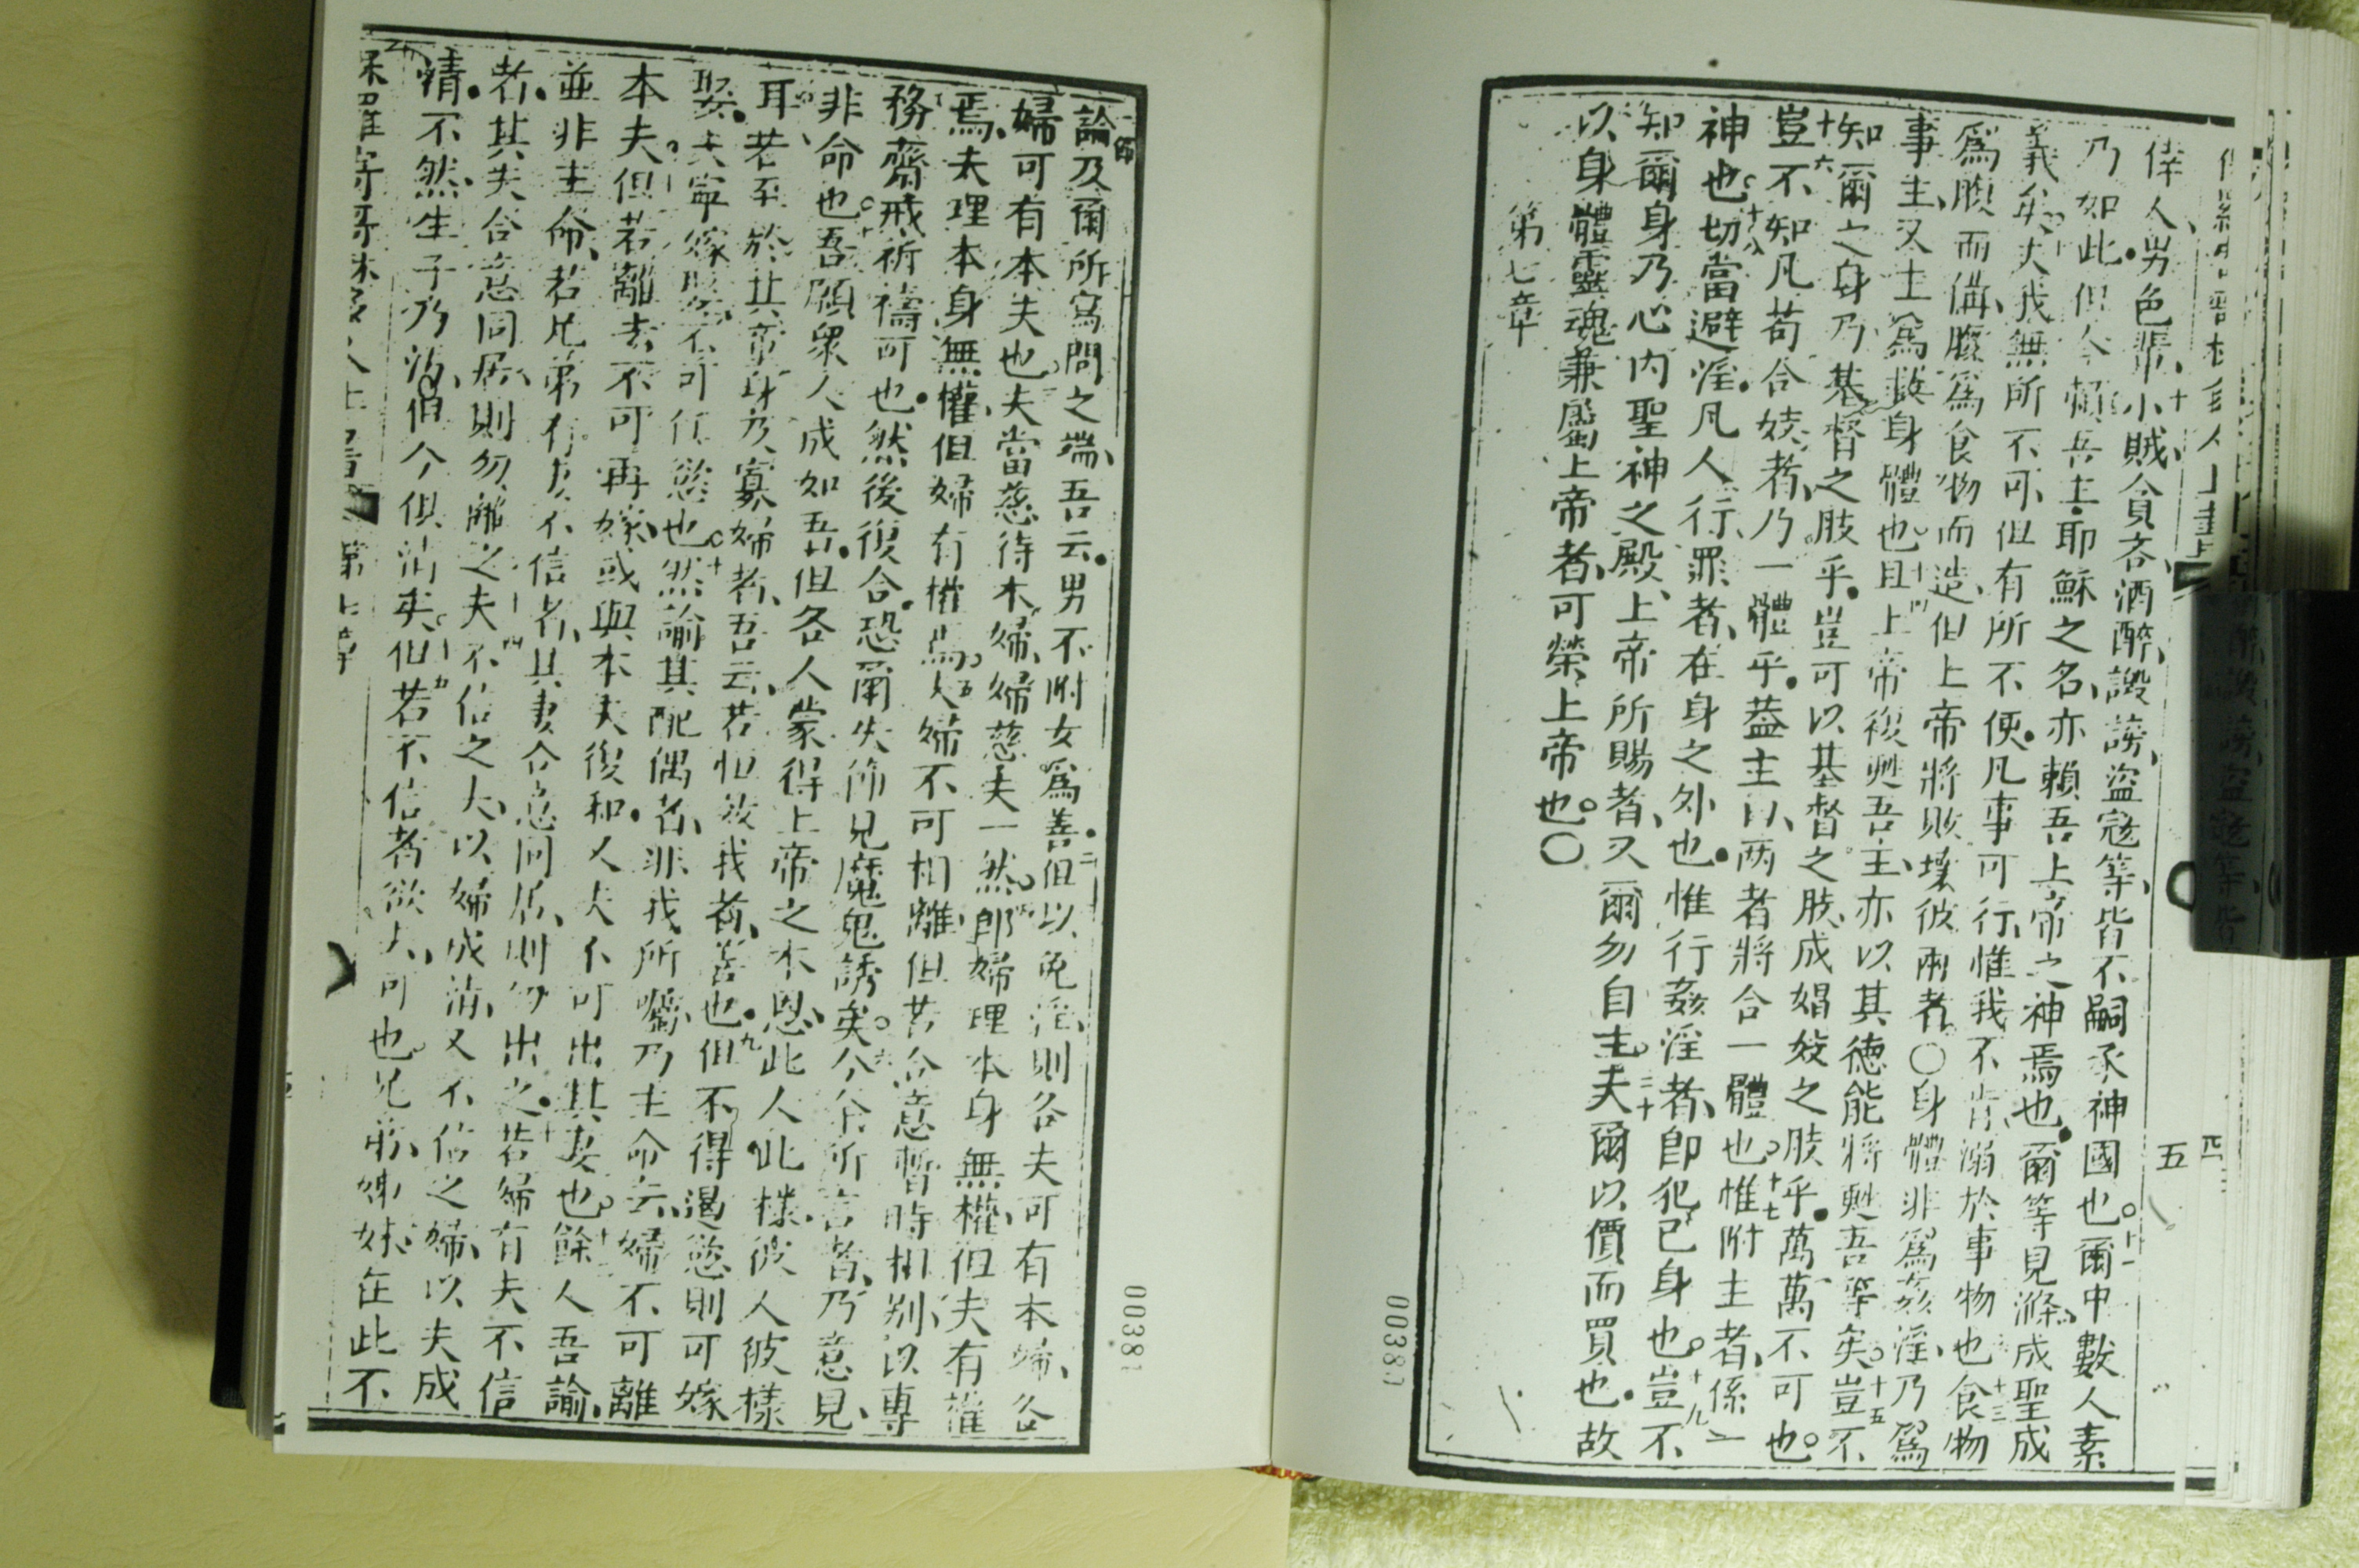 倖人男色輩小賊貪吝酒醉譭謗盜寇等皆不嗣承神國也爾中數人素
乃如此但今賴吾主耶穌之名亦賴吾上帝之神焉也爾等見滌成聖成
義矣夫我無所不可但有所不便凡事可行惟我不肯溺於事物也食物
為腹而備腹為食物而造但上帝將敗壞彼兩者〇身體非為姦淫乃為
事主又主為救身體也且上帝復甦吾主亦以其德能將甦吾等矣豈不
知爾之身乃基督之肢乎豈可以基督之肢成娼妓之肢乎萬萬不可也
豈不知凡苟合妓者乃一體乎蓋主以兩者將合一體也惟附主者係一
神也切當避淫凡人行罪者在身之外也惟行姦淫者卽犯己身也豈不
知爾身乃心内聖神之殿上帝所賜者又爾勿自主夫爾以價而買也故
以身體靈魂兼屬上帝者可榮上帝也〇
第七章
五
論及爾所寫問之端吾云男不附女為善但以免淫則各夫可有本婦各
婦可有本夫也夫當慈待本婦婦慈夫一然卽婦理本身無權但夫有權
焉夫理本身無權但婦有權焉夫婦不可相離但若合意暫時相別以專
務齋戒祈禱可也然後復合恐爾失節見魔鬼誘矣今余所言者乃意見
非命也吾願眾人成如吾但各人蒙得上帝之本恩此人此樣彼人彼樣
耳若至於其帝身及寡婦者吾云若恒效我者善也但不得遏慾則可嫁
娶夫寧嫁娶不可任慾也然諭其配偶者非我所囑乃主命云婦不可離
本夫但若離去不可再嫁或與本夫復和又夫不可出其妻也餘人吾諭
並非主命若兄弟有妻不信者其妻合意同居則勿出之若婦有夫不信
者其夫合意同居則勿離之夫不信之夫以婦成清又不信之婦以夫成
清不然生子乃沾但今俱清矣但若不信者欲去可也兄弟姊妹在此不
00381